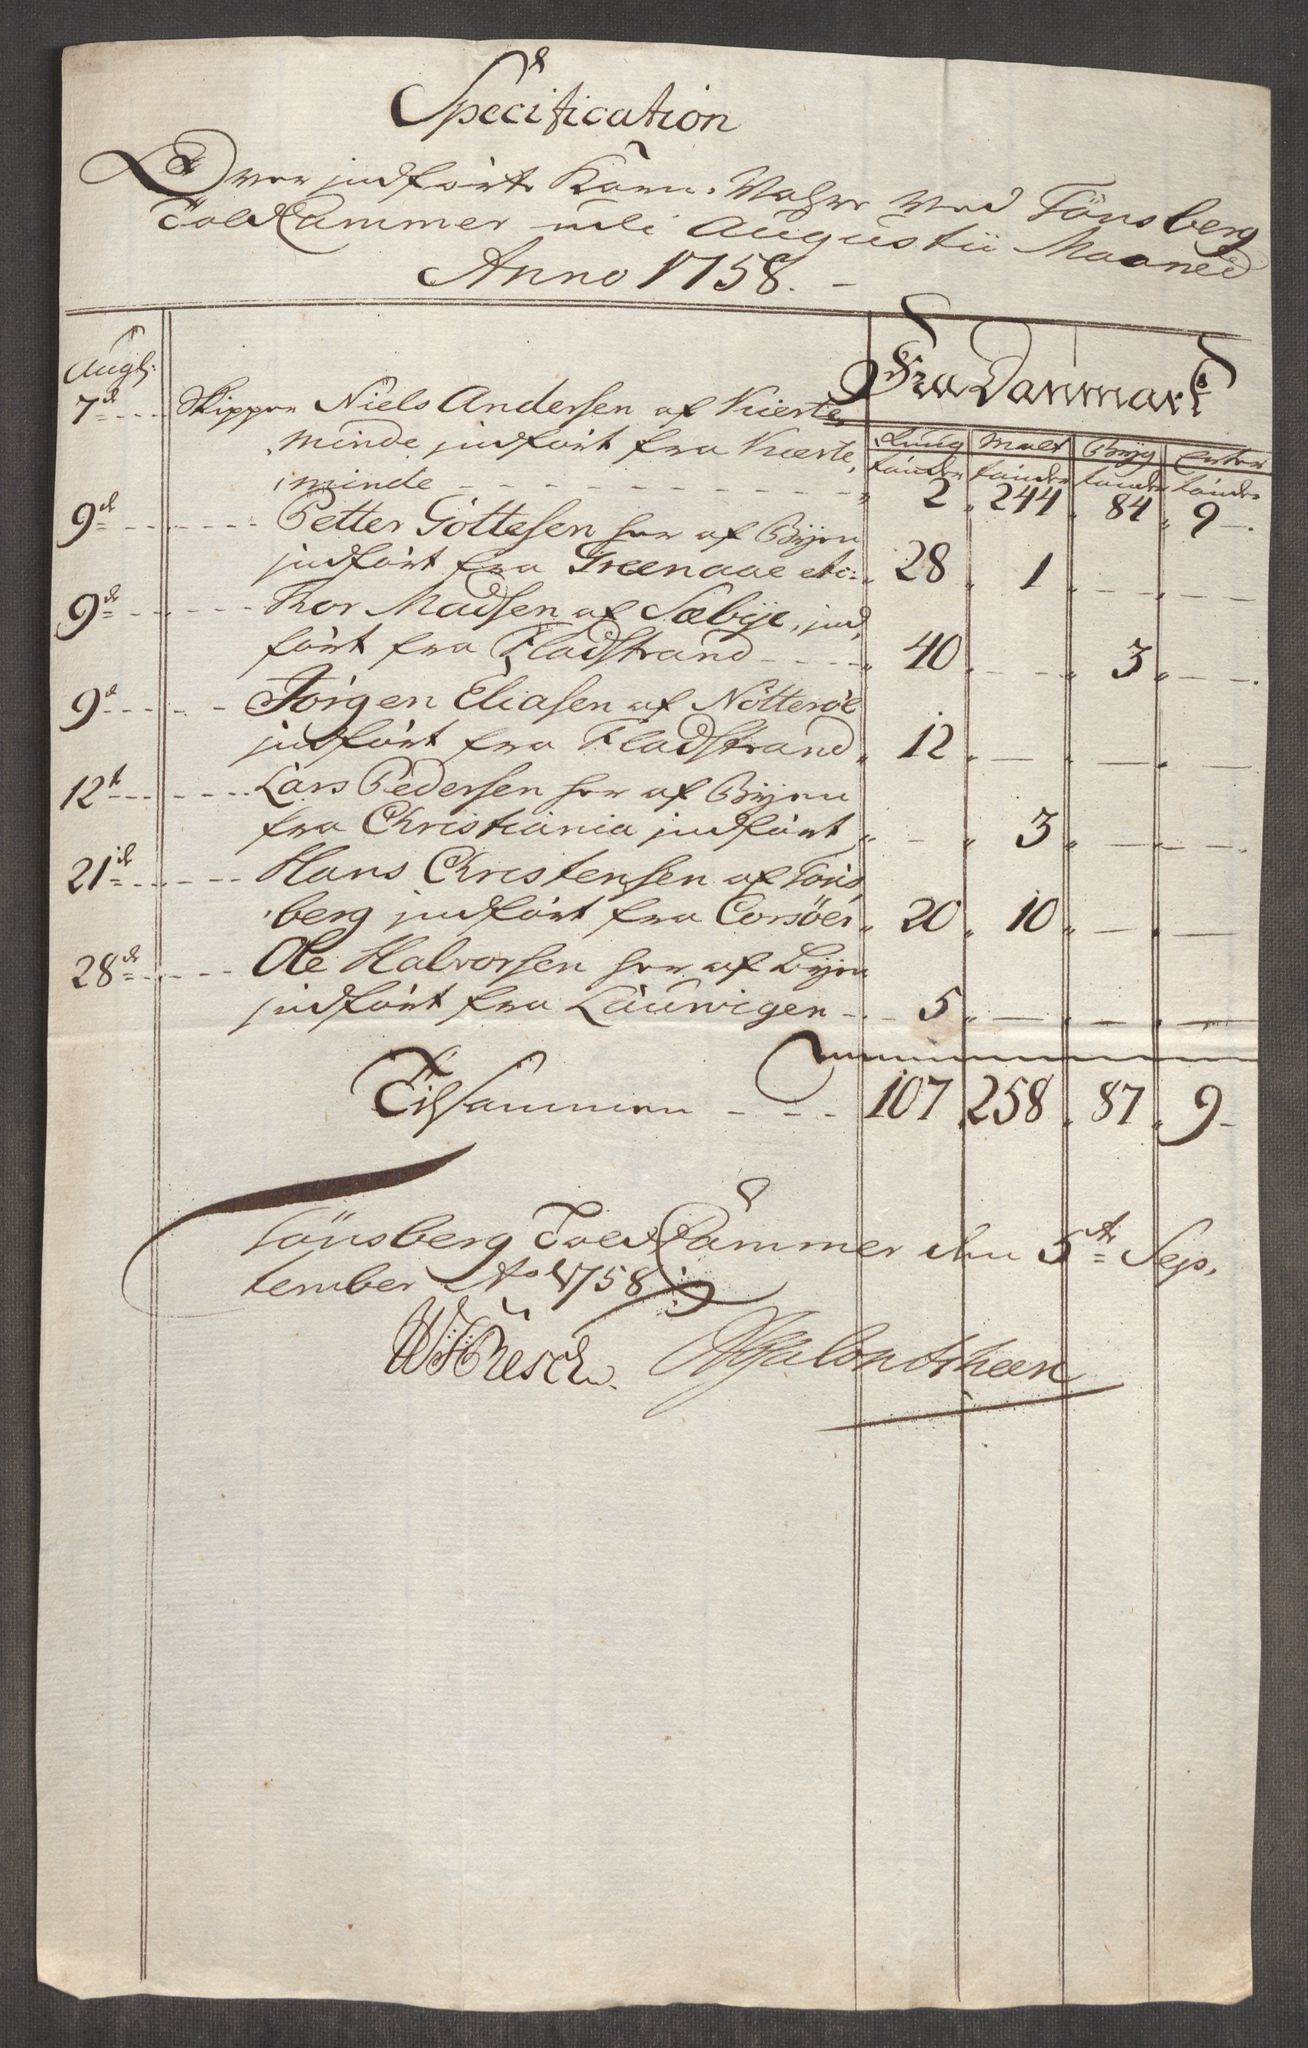 Specification
Over indförte Korn-Vahre ved Tönsberg
ToldKammer udi Augustii Maaned
Anno 1758. -
Fra Danmark
Augti:
Rug Malt Byg Erter
tönder tönder tönder tönder
7de Skipper Niels Andersen af Kierte,
minde, indfört fra Kierte,
minde - - - 2 244 84 9
9de Petter Göttesen her af Byen
indfört fra Greenaae etc: 28 1
9de Thor Madsen af Sæbye, ind,
fört fra Fladstrand - - - 40 3
9de Jörgen Eliasen af Nötteröe
indfört fra Fladstrand 12
12te Lars Pedersen her af Byen
fra Christiania indfört 3
21de Hans Christensen af Töns,
berg indfört fra Corsöer 20 10
28de Ole Halvorsen her af Byen
indfört fra Laurvigen - 5
Tilsammen - - - 107 258 87 9
Tönsberg ToldKammer den 5te Sep,
tember Ao 1758